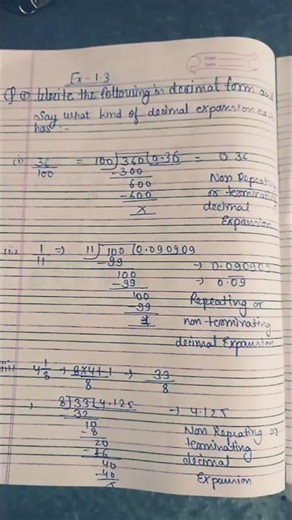 Ex - 1.3
Q ① Write the following in decimal form and
Say what kind of decimal expansion each
has :-
(i) 36/100 = 100)360(0.36 = 0.36
-300
600
-600
x
Non Repeating
or terminating
decimal
Expansion
(ii) 1/11 => 11)100(0.090909
-99
100
-99
100
99
1
→ 0.090909
→ 0.09
Repeating or
non terminating
decimal Expansion
(iii) 4 1/8 → 8×4+1/8 → 33/8
8)33(4.125 → 4.125
-32
10
-8
20
-16
40
-40
x
Non Repeating or
terminating
decimal
Expansion